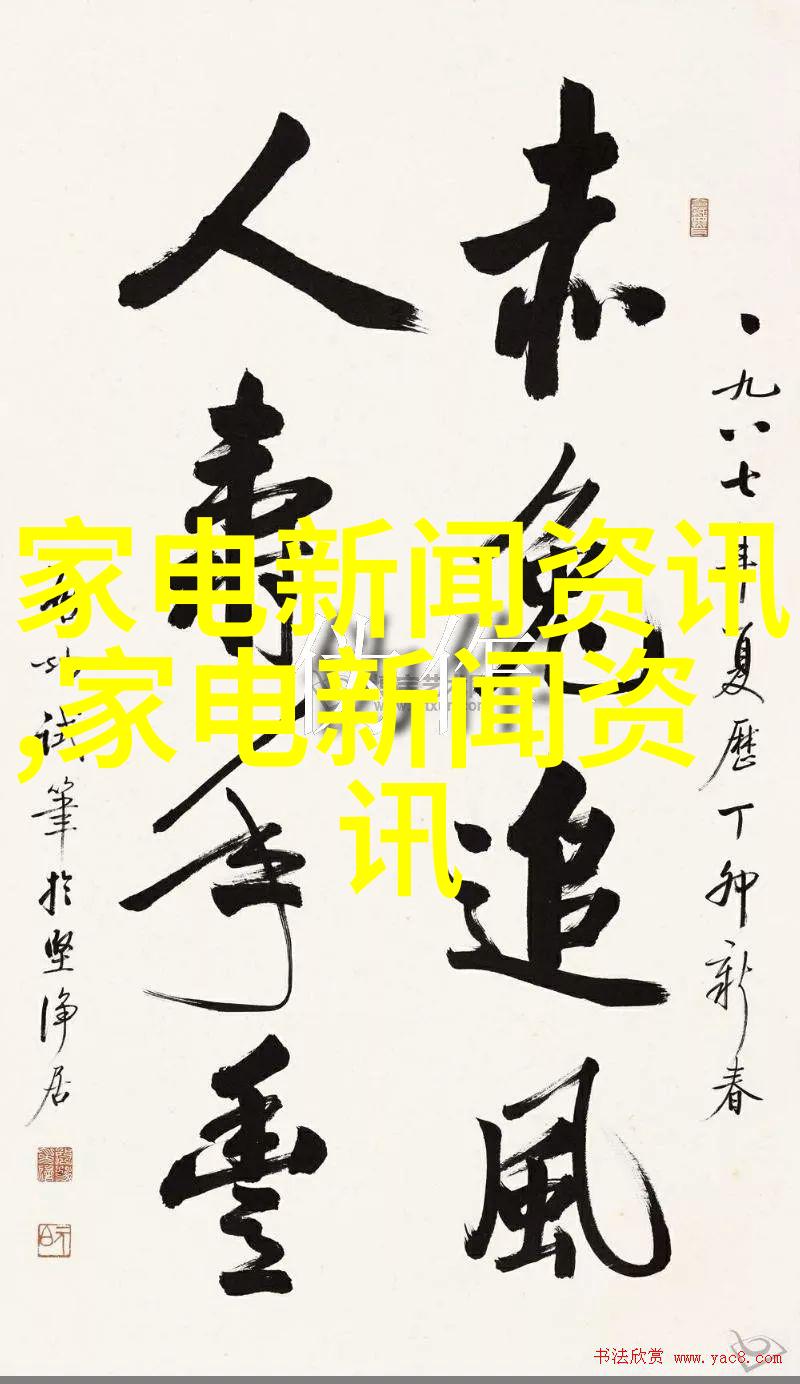 赤兔追風
人壽年豐
一九八七年夏歷丁卯新春
啓功試筆於堅净居
家电新闻资讯
,家电新闻资
讯
书法欣赏 www.yac8.com